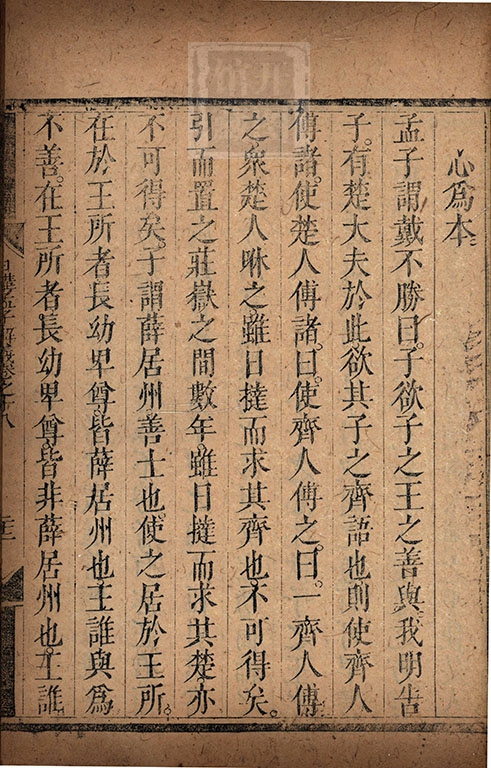 心爲本
孟子謂戴不勝曰。子欲子之王之善與我明告
子。有楚大夫於此欲其子之齊語也則使齊人
傅諸。使楚人傅諸。曰。使齊人傅之。曰。一齊人傅
之衆楚人咻之雖日撻而求其齊也不可得矣。
引而置之莊嶽之間數年。雖日撻而求其楚亦
不可得矣。子謂薛居州善士也。使之居於王所。
在於王所者長幼卑尊。皆薛居州也王誰與爲
不善。在王所者。長幼卑尊皆非薛居州也。王誰